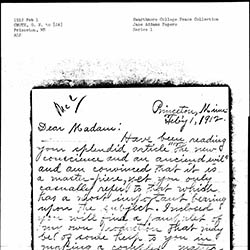 1912 Feb 1
Princeton, MN
ALS
Swarthmore College Peace Collection
Jane Addams Papers
Series 1
Princeton, Minn
Feb'y 1, 1912.
Dear Madam:
Have been reading
your splendid article the new
conscience and an ancient evil
and am convinced that it is
a master-piece, yet you only
casually refer to that which
has a most important bearing
upon the subject. Inclosed
you will find a pamphlet of
my own production that may
be of some help to you in
making a complete